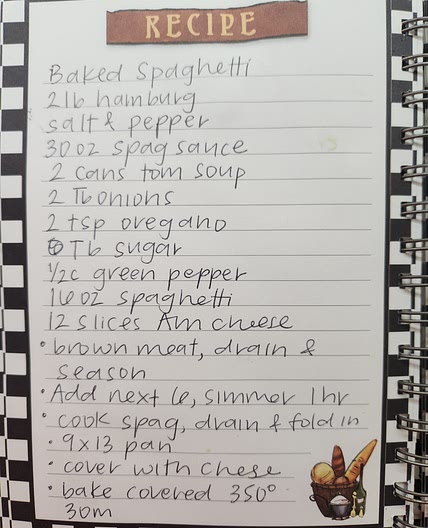 RECIPE
Baked Spaghetti
2 lb hamburg
salt & pepper
30 oz spag sauce
2 cans tom soup
2 Tb onions
2 tsp oregano
6 Tb sugar
1/2 c green pepper
16 oz spaghetti
12 slices Am cheese
• brown meat, drain &
season
• Add next 6, simmer 1 hr
• cook spag, drain & fold in
• 9x13 pan
• cover with chese
• bake covered 350°
30m